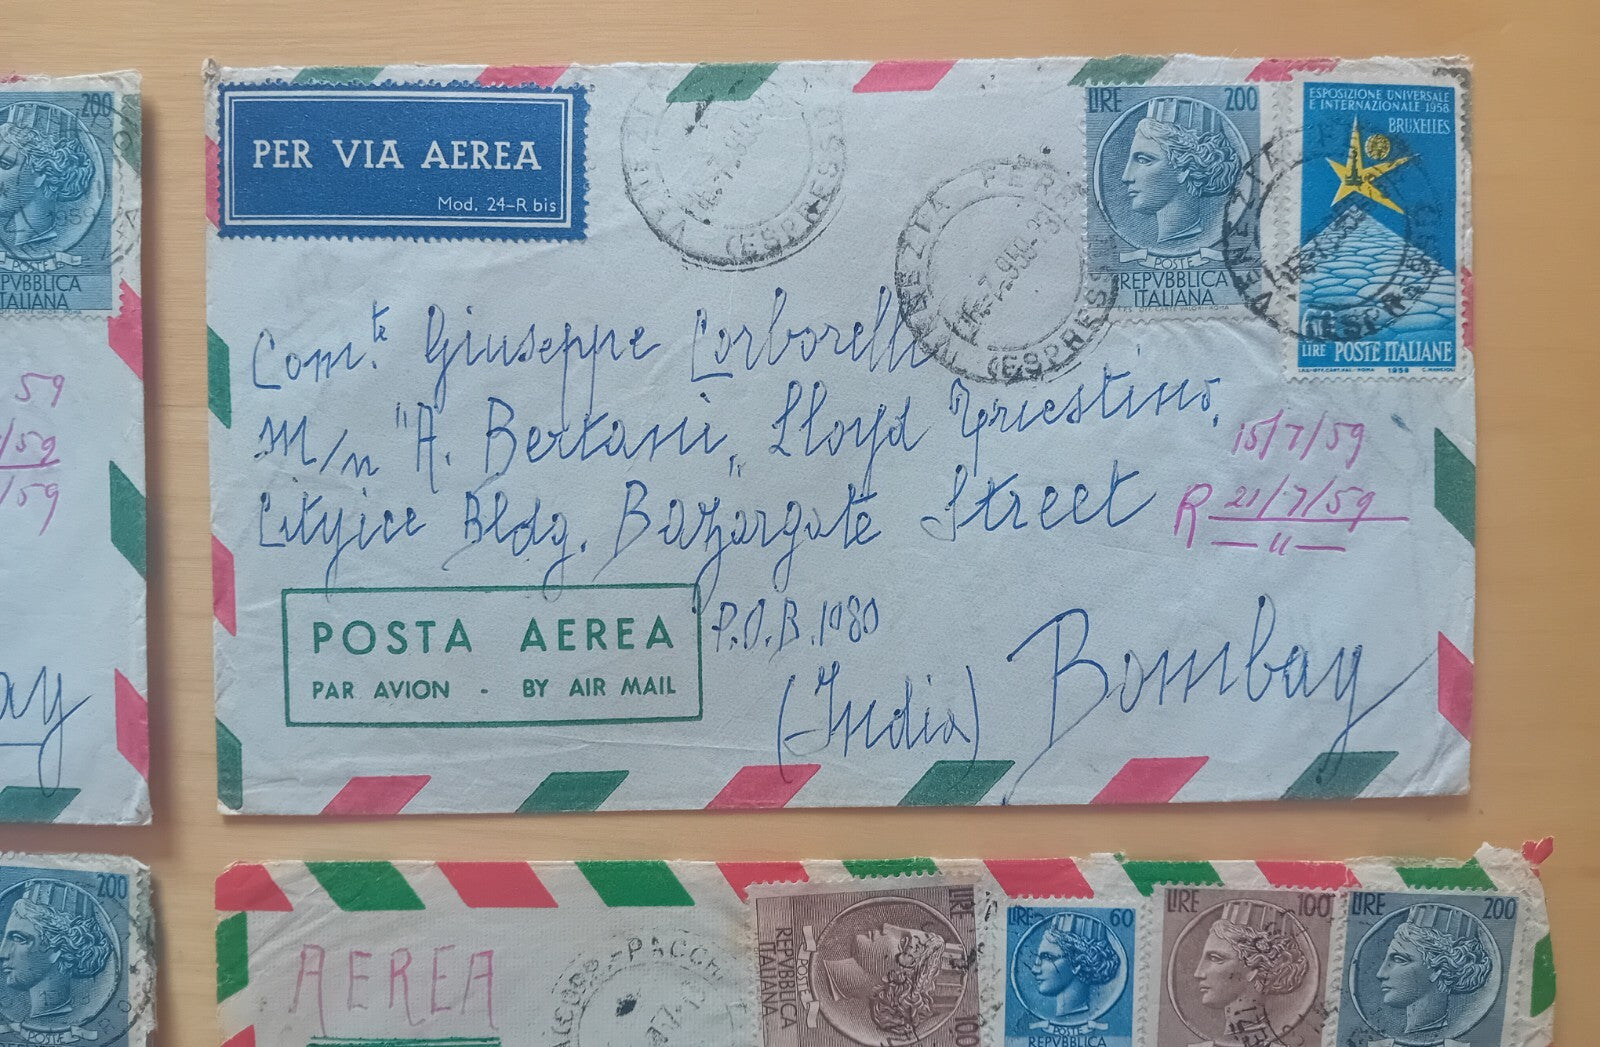 200
REPVBBLICA
ITALIANA
59
/59
/59
ay
200
PER VIA AEREA
Mod. 24-R bis
VENEZIA FERR
(ESPRESSI
LIRE 200
POSTE
REPVBBLICA
ITALIANA
ESPOSIZIONE UNIVERSALE
E INTERNAZIONALE 1958
BRUXELLES
LIRE POSTE ITALIANE
1958
Com.te Giuseppe Corborelli
M/n "A. Bertani" Lloyd Triestino.
Cityice Bldg. Bazargate Street
15/7/59
R 21/7/59
—"—
P.O.B. 1080
(India) Bombay
POSTA AEREA
PAR AVION - BY AIR MAIL
AEREA
PACCHI
LIRE 100
POSTE
REPVBBLICA
ITALIANA
LIRE 60
POSTE
REPVBBLICA
LIRE 100
LIRE 200